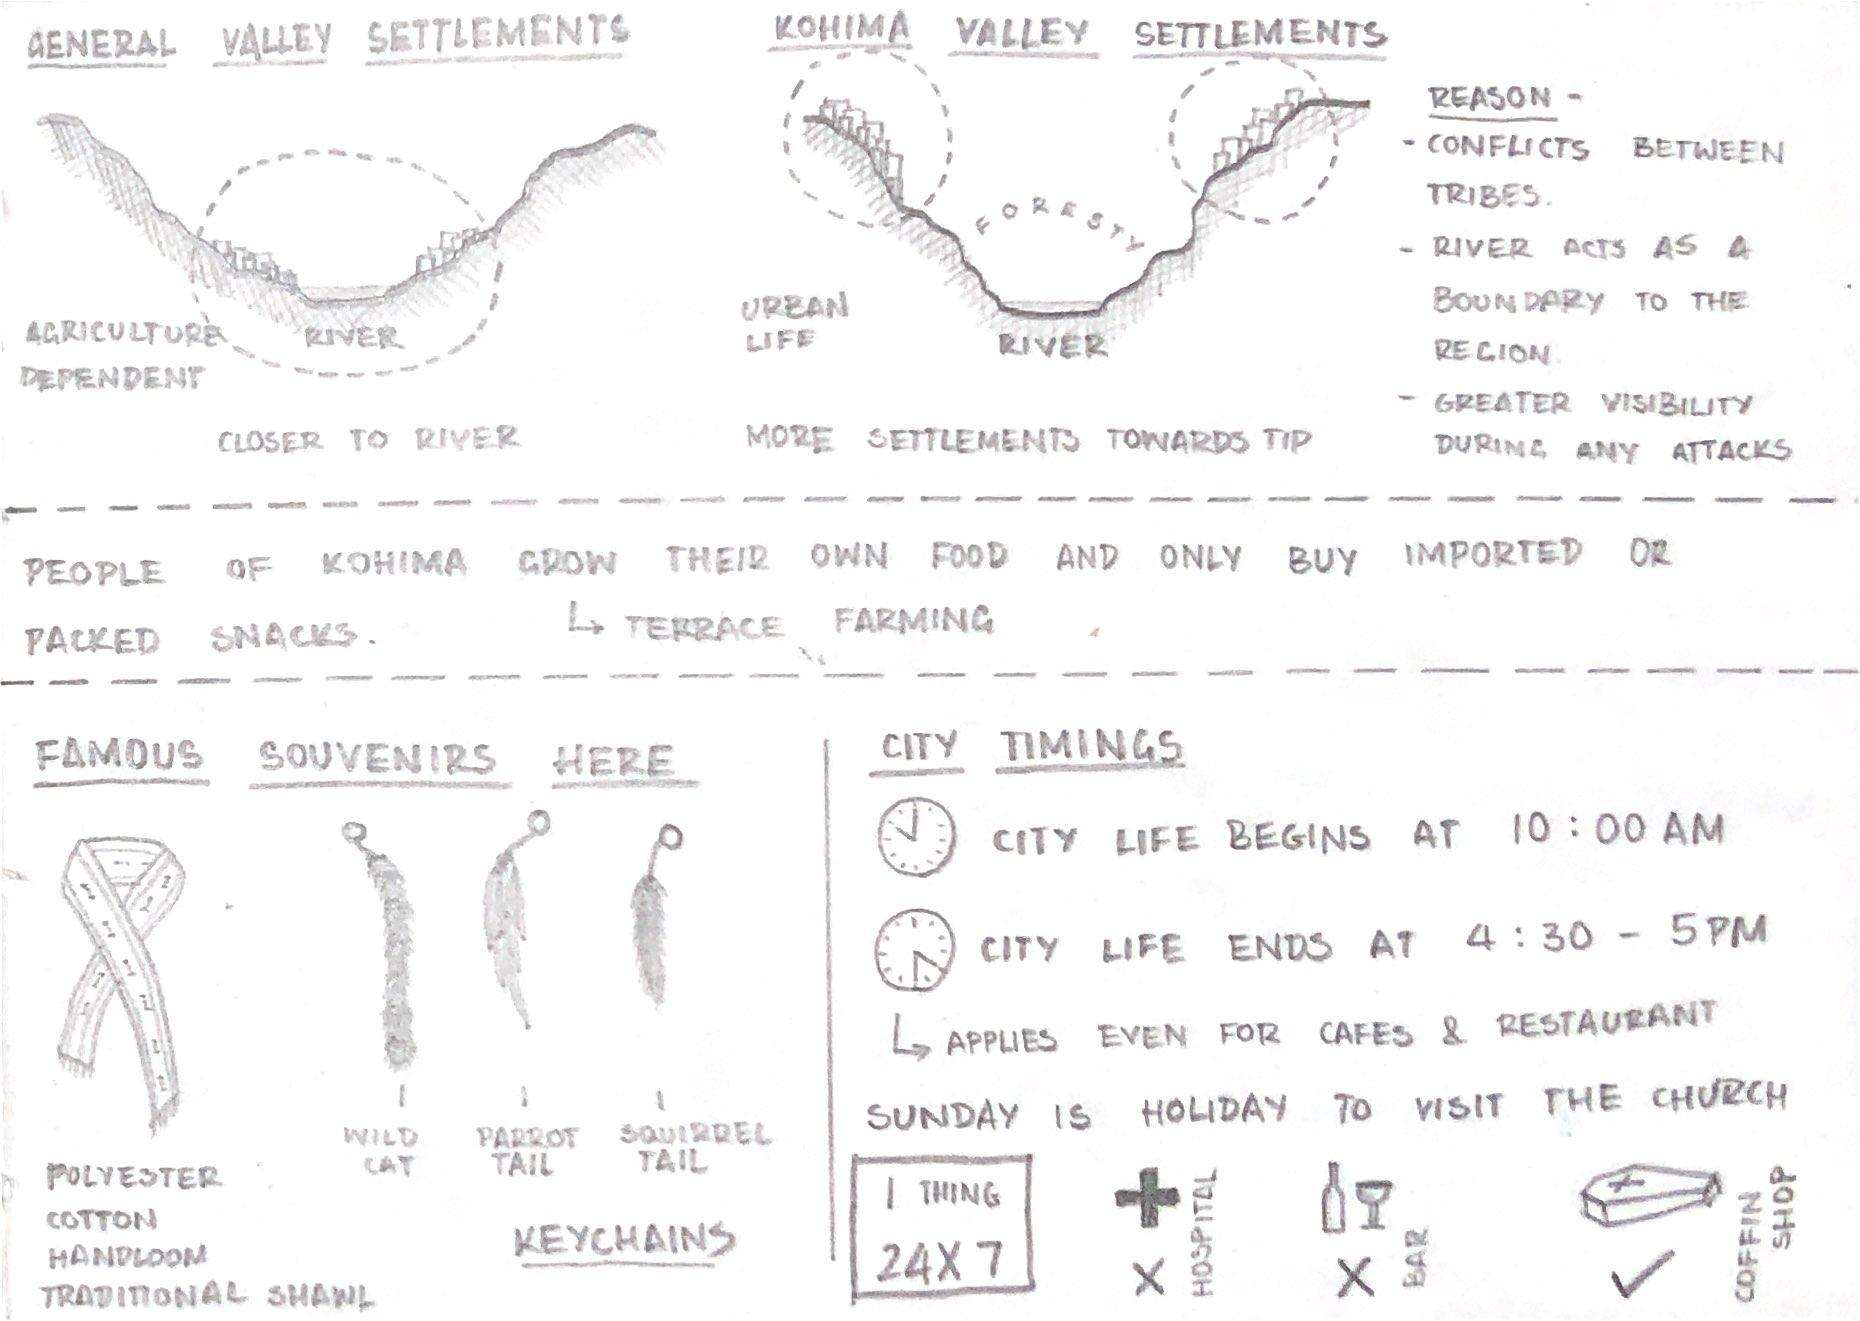 GENERAL VALLEY SETTLEMENTS
AGRICULTURE
DEPENDENT
RIVER
CLOSER TO RIVER
KOHIMA VALLEY SETTLEMENTS
FORESTY
URBAN
LIFE
RIVER
MORE SETTLEMENTS TOWARDS TIP
REASON -
- CONFLICTS BETWEEN
TRIBES.
- RIVER ACTS AS A
BOUNDARY TO THE
REGION.
- GREATER VISIBILITY
DURING ANY ATTACKS
PEOPLE OF KOHIMA GROW THEIR OWN FOOD AND ONLY BUY IMPORTED OR
PACKED SNACKS. ↳ TERRACE FARMING
FAMOUS SOUVENIRS HERE
POLYESTER
COTTON
HANDLOOM
TRADITIONAL SHAWL
WILD
CAT
PARROT
TAIL
SQUIRREL
TAIL
KEYCHAINS
CITY TIMINGS
CITY LIFE BEGINS AT 10:00 AM
CITY LIFE ENDS AT 4:30 - 5 PM
↳ APPLIES EVEN FOR CAFES & RESTAURANT
SUNDAY IS HOLIDAY TO VISIT THE CHURCH
1 THING
24X7
HOSPITAL
BAR
COFFIN
SHOP